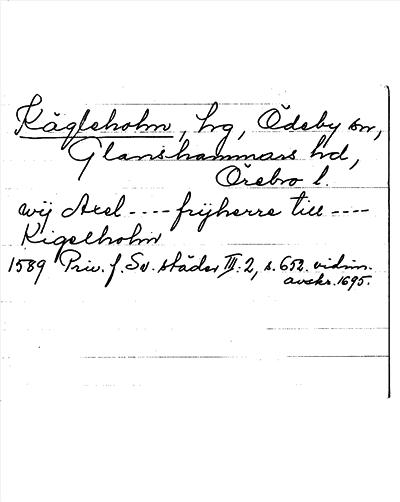 Kägleholm, hrg, Ödeby sn,
Glanshammars hd,
Örebro l.
wij Axel ---- frijherre till ----
Kigelholm
1589 Priv. f. Sv. städer III:2, s. 652. vidim.
avskr. 1695.